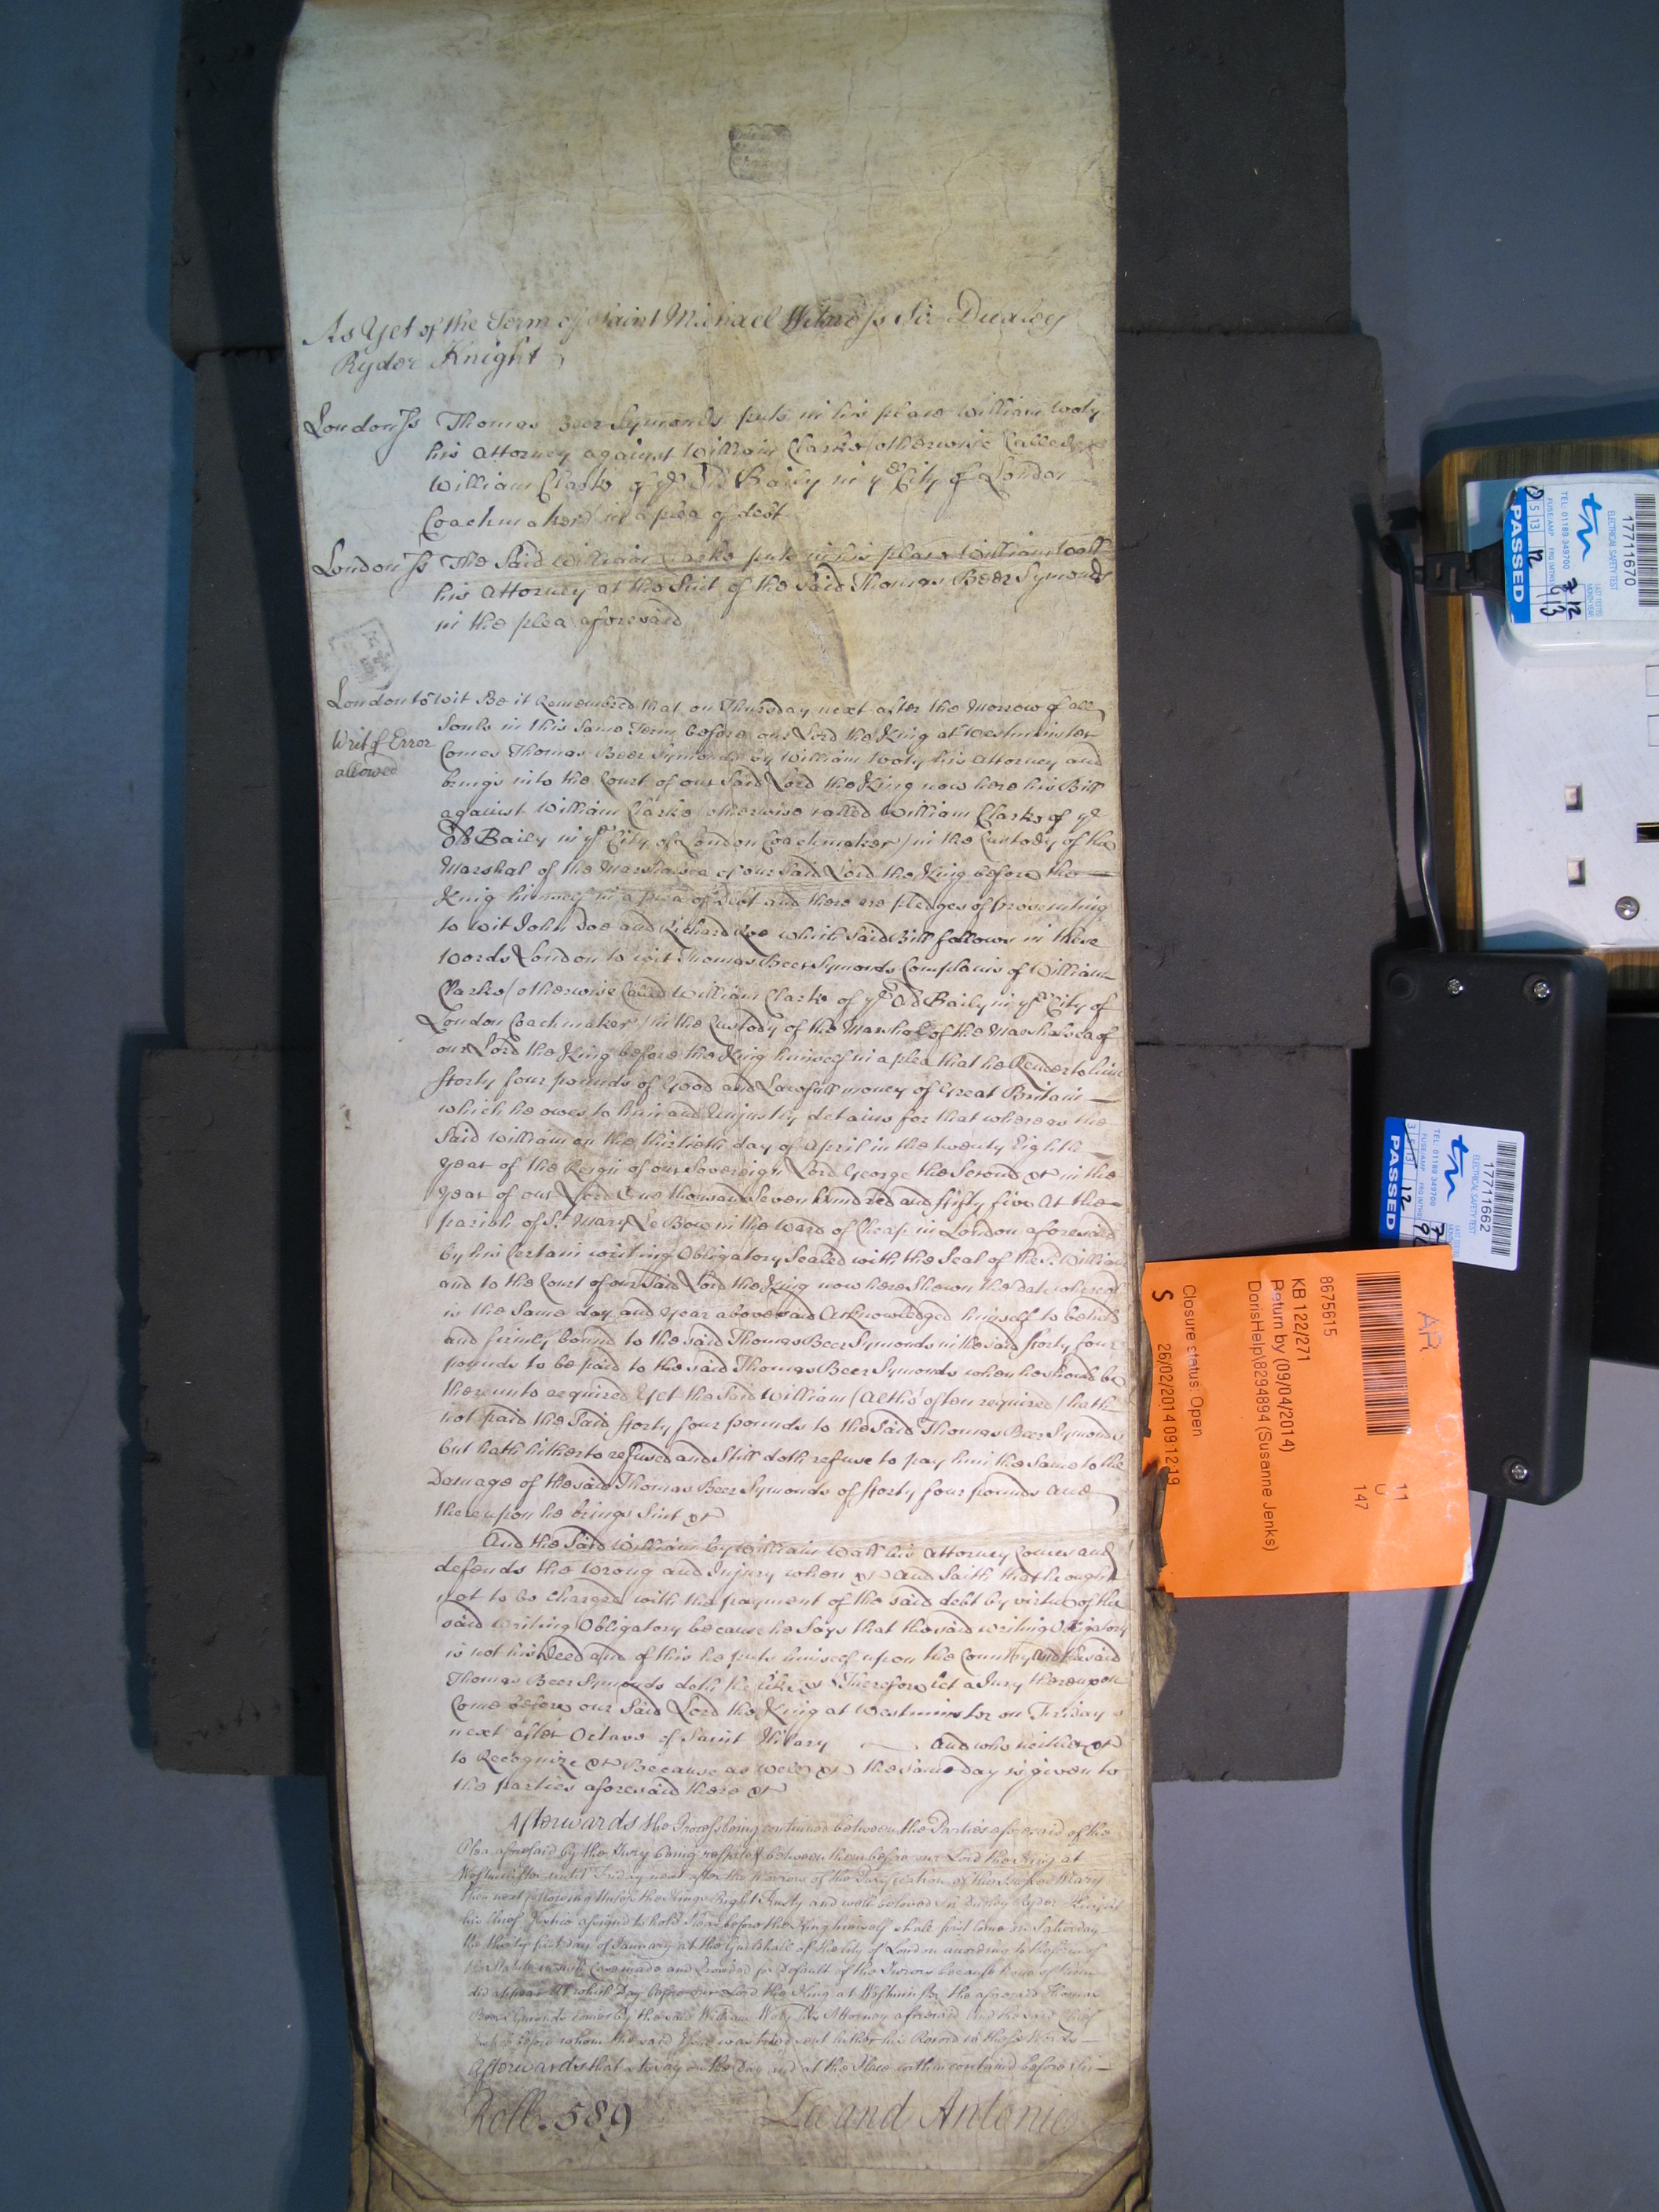 As Yet of the Term of Saint Michael Witness Sir Dudley
Ryder Knight
London ss Thomas Beer Symonds puts in his place William Wooly
his Attorney against William Clarke (otherwise Called
William Clarke of ye Old Baily in ye City of London
Coachmaker) in a plea of debt
London ss The Said William Clarke puts in his place William Wall
his Attorney at the Suit of the Said Thomas Beer Symonds
in the plea aforesaid
London to wit Be it Remembred that on Thursday next after the Morrow of all
Souls in this Same Term before our Lord the King at Westminster
Writ of Error
allowed
Comes Thomas Beer Symonds by William Wooly his Attorney and
brings into the Court of our Said Lord the King now here his Bill
against William Clarke (otherwise called William Clarke of ye
Old Baily in ye City of London Coachmaker) in the Custody of the
Marshal of the Marshalsea of our Said Lord the King before the
King himself in a plea of debt and there are pledges of prosecuting
to wit John Doe and Richard Roe which Said Bill follows in these
words London to wit Thomas Beer Symonds Complains of William
Clarke (otherwise Called William Clarke of ye Old Baily in ye City of
London Coachmaker) in the Custody of the Marshal of the Marshalsea of
our Lord the King before the King himself in a plea that he Render to him
fforty four pounds of Good and Lawfull money of Great Britain
which he owes to him and Unjustly detains for that whereas the
Said William on the thirtieth day of April in the twenty Eighth
year of the Reign of our Sovereign Lord George the Second &c in the
year of our Lord One thousand Seven hundred and fifty five At the
parish of St. Mary Le Bow in the Ward of Cheap in London aforesaid
by his Certain writing Obligatory Sealed with the Seal of the sd. William
and to the Court of our Said Lord the King now here Shewn the date whereof
is the Same day and year abovesaid Acknowledged himself to be held
and firmly bound to the said Thomas Beer Symonds in the said fforty four
pounds to be paid to the said Thomas Beer Symonds when he should be
thereunto required Yet the Said William (Altho' often required) hath
not paid the Said fforty four pounds to the Said Thomas Beer Symonds
but hath hitherto refused and Still doth refuse to pay him the Same to the
Damage of the said Thomas Beer Symonds of fforty four pounds and
thereupon he brings Suit &c
And the Said William by William Wall his Attorney Comes and
defends the Wrong and Injury when &c And Saith that he ought
not to be Charged with the payment of the said debt by virtue of the
said Writing Obligatory because he Says that the said writing Obligatory
is not his Deed and of this he puts himself upon the Country And the said
Thomas Beer Symonds doth the like &c Therefore let a Jury thereupon
Come before our Said Lord the King at Westminster on Friday
next after Octave of Saint Hilary and who neither &c
to Recognize &c Because as well &c the same day is given to
the parties aforesaid there &c
Afterwards the Process being continued between the Parties aforesaid of the
Plea aforesaid by the Jury being respited between them before our Lord the King at
Westminster until Friday next after the Morrow of the Purification of the Blessed Mary
then next following Unless the Kings Right Trusty and well beloved Sir Dudley Ryder Knight
his Chief Justice assigned to hold Pleas before the King himself shall first come on Saturday
the thirty first day of January at the Guildhall of the City of London according to the form of
the Statute in such Case made and provided for Default of the Jurors because none of them
did appear At which Day before our Lord the King at Westminster the aforesaid Thomas
Beer Symonds comes by the said William Wooly his Attorney aforesaid and the said Chief
Justice before whom the said Issue was tried sent hither his Record in these Words
Afterwards that is to say on the Day and at the Place within contained before Sir
Roll. 589
Lee and Antonie
17711670
ELECTRICAL SAFETY TEST
TEL: 01189 349700
PASSED
17711662
ELECTRICAL SAFETY TEST
TEL: 01189 349700
PASSED
AR
11
U
147
8675615
KB 122/271
Return by (09/04/2014)
DorisHelp\8294894 (Susanne Jenks)
Closure status: Open
26/02/2014 09:12:19
S